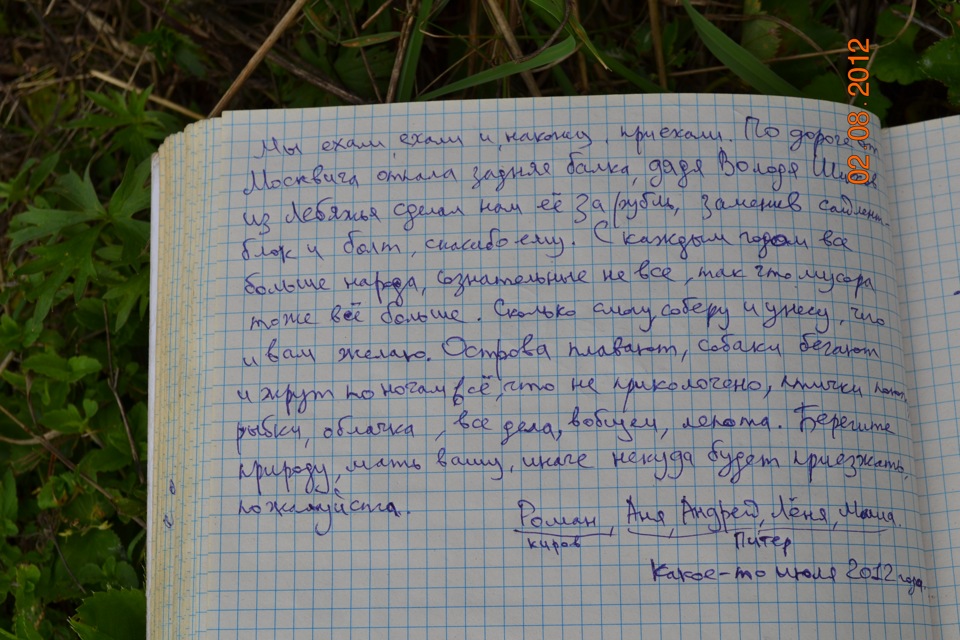 Мы ехали, ехали и, наконец, приехали. По дороге от
Москвича отпала задняя балка, дядя Володя
из Лебяжья сделал нам её за рубль, заменив сайлент-
блок и болт, спасибо ему. С каждым годом все
больше народа, сознательные не все, так что мусора
тоже всё больше. Сколько смогу соберу и унесу, что
и вам желаю. Острова плавают, собаки бегают
и жрут по ночам всё, что не приколочено, птички поют,
рыбки, облачка, все дела, вобщем, лепота. Берегите
природу, мать вашу, иначе некуда будет приезжать,
пожалуйста.
Роман, Аня, Андрей, Лёня, Маша.
Киров Питер
Какое-то июля 2012 года.
02.08.2012